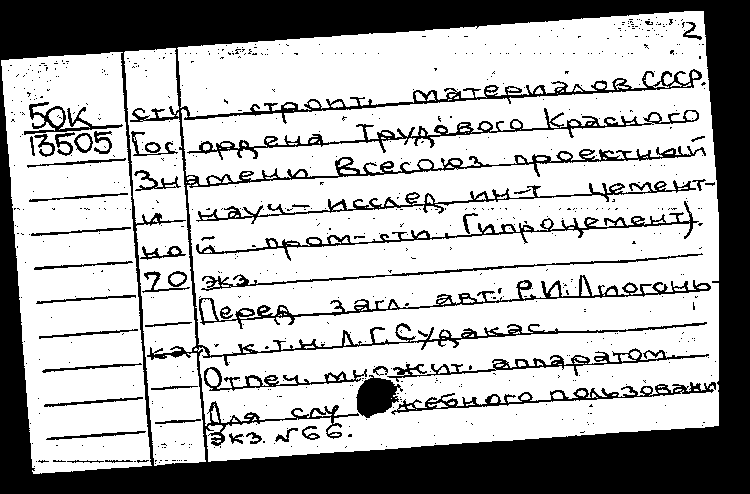 2
50К
13505
сти строит. материалов СССР.
Гос ордена Трудового Красного
Знамени Всесоюз проектный
и науч-исслед ин-т цемент-
ной пром-сти. (Гипроцемент).
70 экз.
Перед загл. авт: Р.И.
кая, к.т.н. Л.Г.Судакас.
Отпеч. множит. аппаратом.
Для служебного пользовани
Экз. №66.